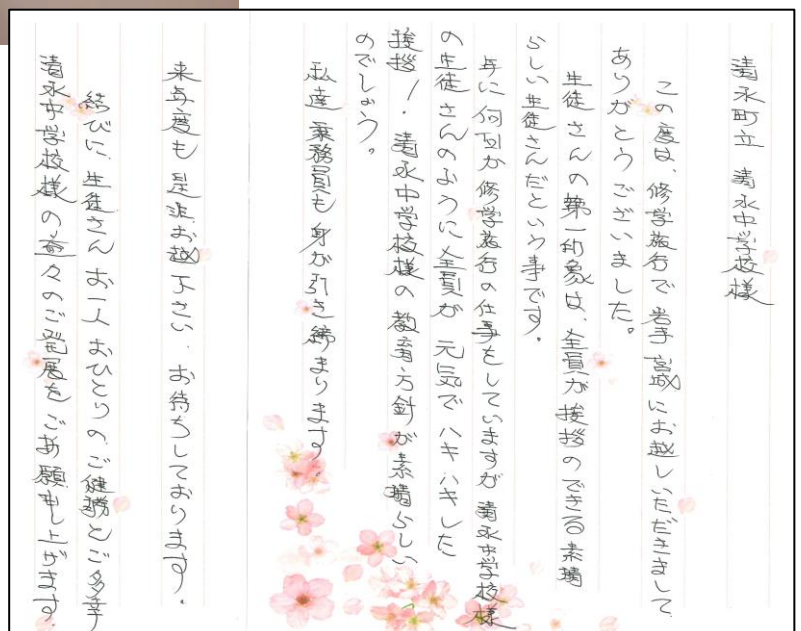 清水町立 清水中学校様
この度は、修学旅行で岩手宮城にお越しいただきまして
ありがとうございました。
生徒さんの第一印象は、全員が挨拶のできる素晴
らしい生徒さんだという事です。
年に何回か修学旅行の仕事をしていますが 清水中学校様
の生徒さんのように全員が 元気でハキハキした
挨拶!清水中学校様の教育方針が素晴らしい
のでしょう。
私達乗務員も身が引き締まります
来年度も是非お越下さい。お待ちしております。
結びに、生徒さんお一人おひとりの、ご健勝とご多幸
清水中学校様の益々のご発展をご祈願申し上げます